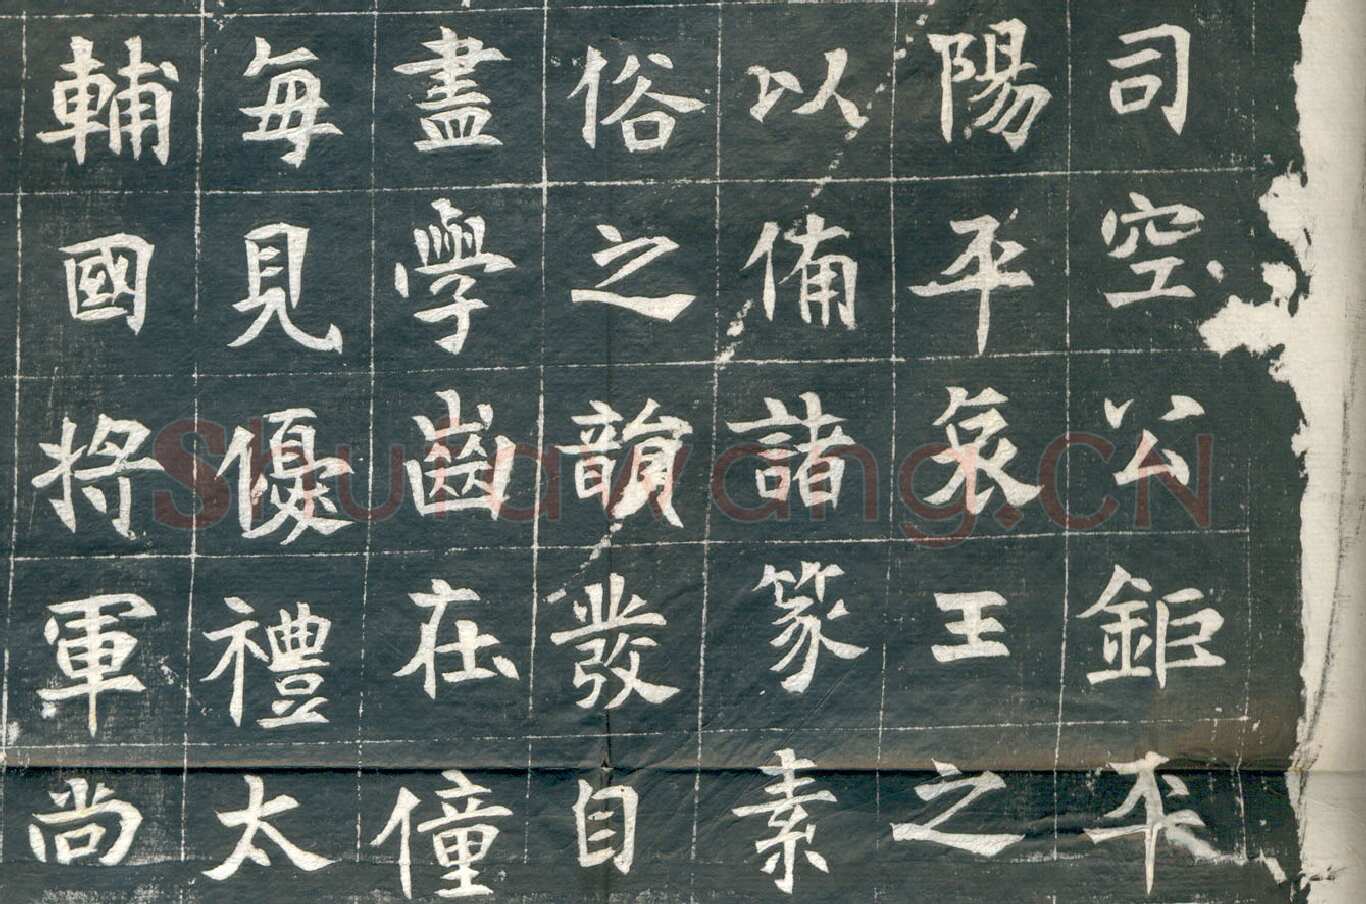 司空公鉅平
陽平哀王之
以俻諸篆素
俗之韻發自
盡學齒在僮
每見優禮太
輔國將軍尚
Shufawang.CN